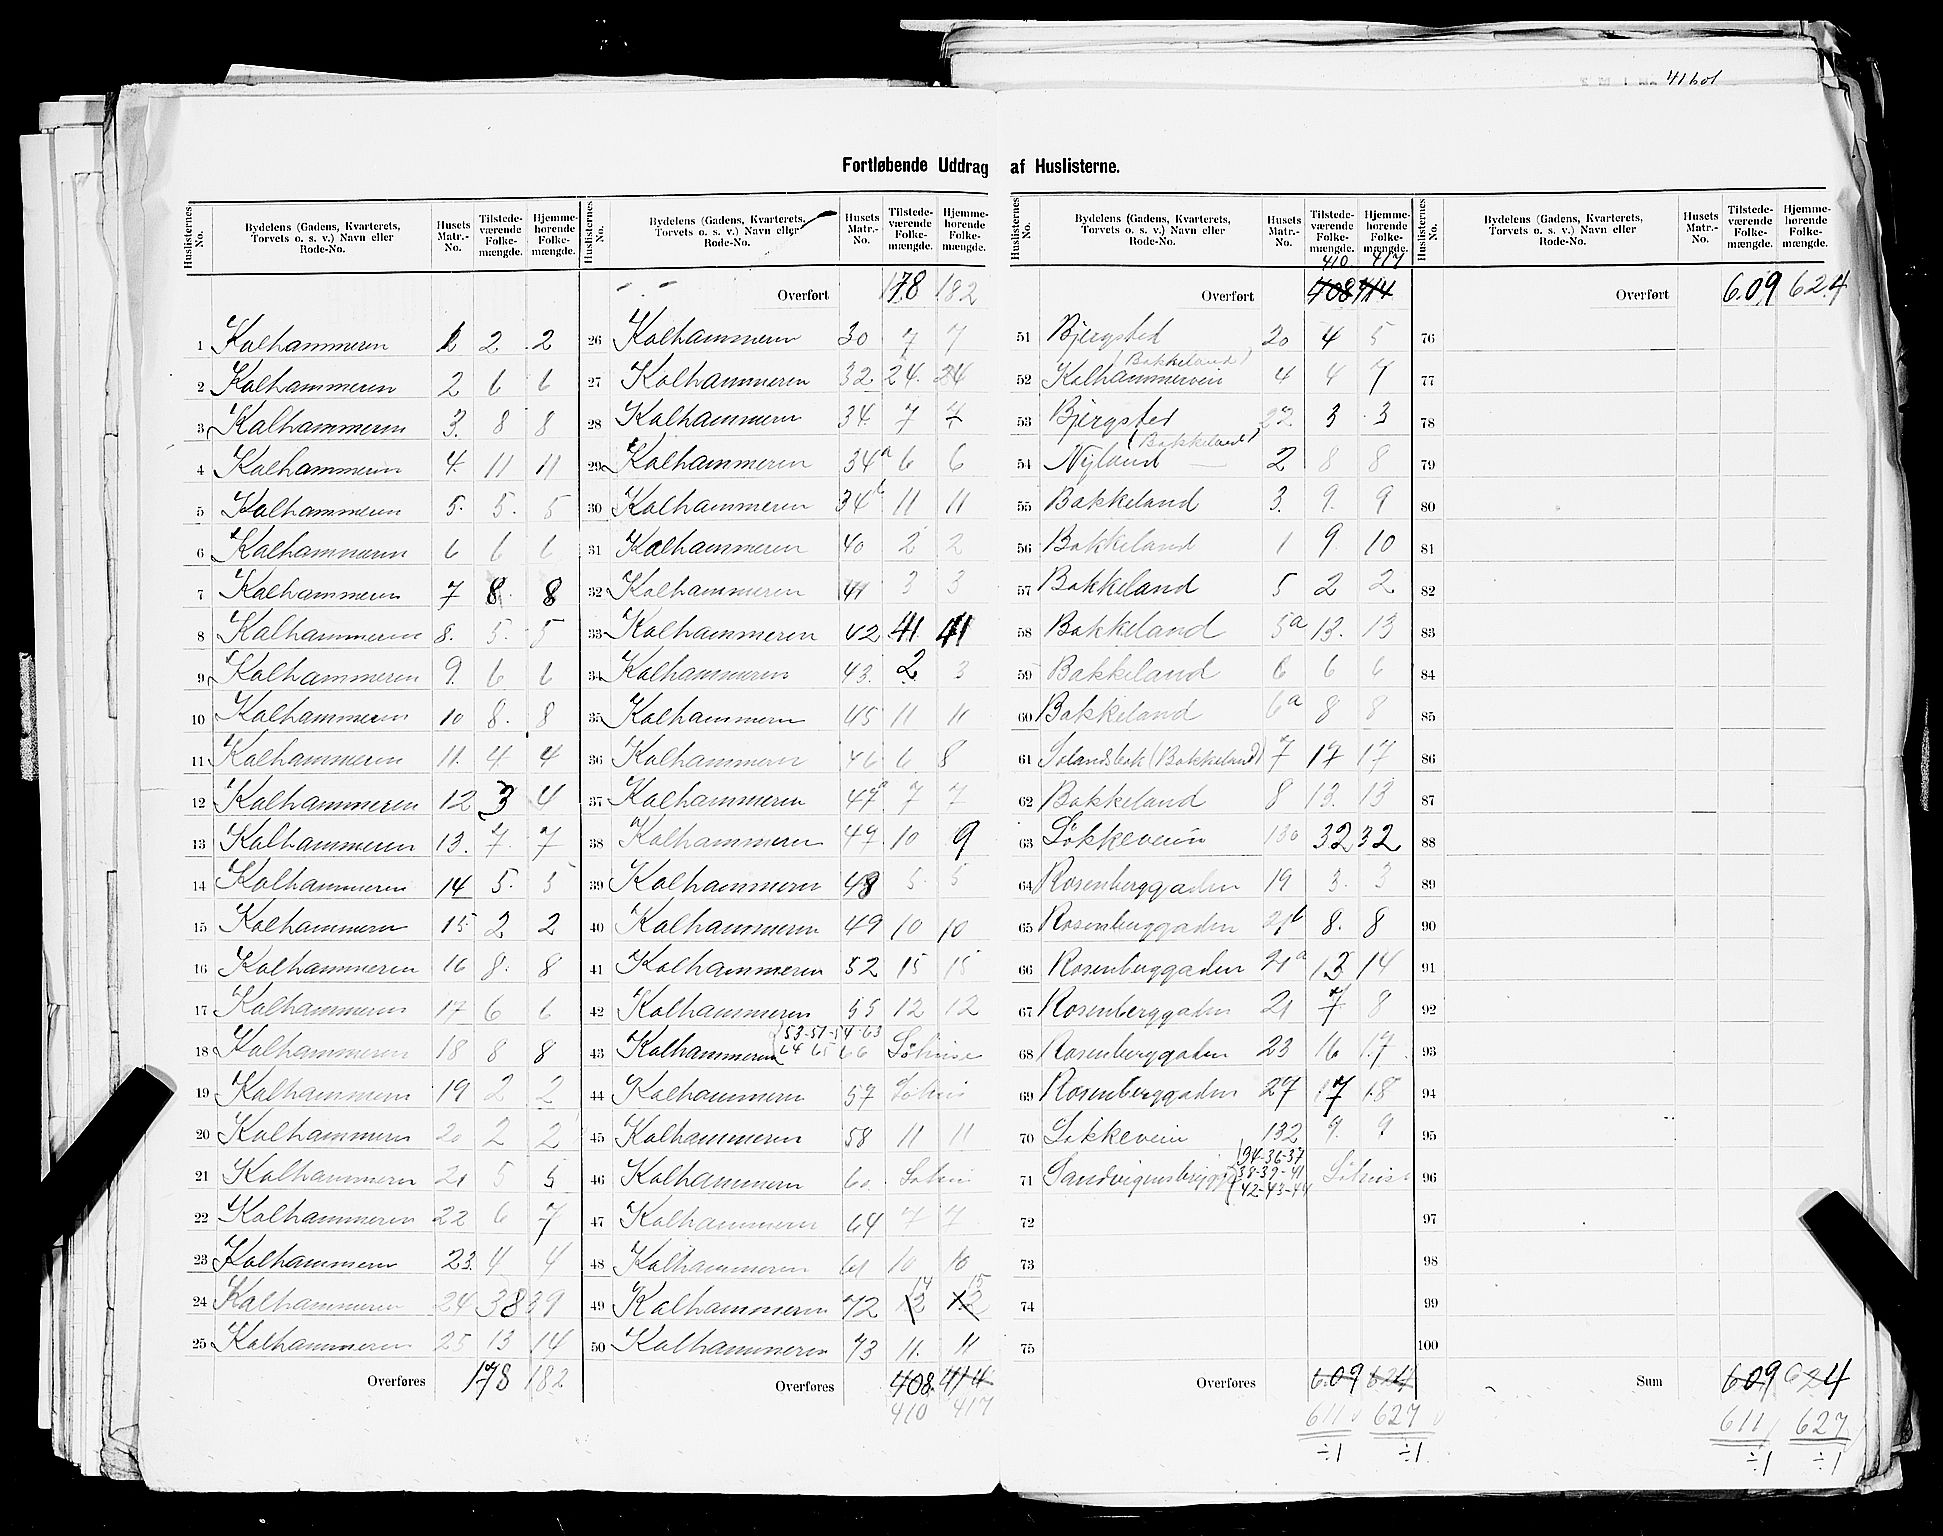 41601
Fortløbende Uddrag af Huslisterne.
Huslisternes No. | Bydelens (Gadens, Kvarterets, Torvets o. s. v.) Navn eller Rode-No. | Husets Matr.-No. | Tilstede-værende Folke-mængde. | Hjemme-hørende Folke-mængde.
1 Kalhammeren 1 2 2
2 Kalhammeren 2 6 6
3 Kalhammeren 3. 8 8
4 Kalhammeren 4. 11 11
5 Kalhammeren 5. 5. 5
6 Kalhammeren 6 6 6
7 Kalhammeren 7 8. 8
8 Kalhammeren 8. 5. 5
9 Kalhammeren 9. 6 6
10 Kalhammeren 10 8. 8
11 Kalhammeren 11. 4 4
12 Kalhammeren 12 3 4
13 Kalhammeren 13. 7. 7
14 Kalhammeren 14 5. 5
15 Kalhammeren 15 2 2
16 Kalhammeren 16 8. 8
17 Kalhammeren 17 6 6
18 Kalhammeren 18 8 8
19 Kalhammeren 19 2 2
20 Kalhammeren 20 2 2
21 Kalhammeren 21 5 5
22 Kalhammeren 22 6 7
23 Kalhammeren 23. 4 4
24 Kalhammeren 24 38 39
25 Kalhammeren 25 13 14
Overføres 178 182
Huslisternes No. | Bydelens (Gadens, Kvarterets, Torvets o. s. v.) Navn eller Rode-No. | Husets Matr.-No. | Tilstede-værende Folke-mængde. | Hjemme-hørende Folke-mængde.
Overført 178 182
26 Kalhammeren 30 7 7
27 Kalhammeren 32 24. 24
28 Kalhammeren 34. 7 7
29 Kalhammeren 34a 6 6
30 Kalhammeren 34b 11 11
31 Kalhammeren 40 2 2
32 Kalhammeren 41 3 3
33 Kalhammeren 42 41. 41
34 Kalhammeren 43. 2 3
35 Kalhammeren 45 11 11
36 Kalhammeren 46 6 8
37 Kalhammeren 47a 7 7
38 Kalhammeren 47. 10 9
39 Kalhammeren 48 5. 5
40 Kalhammeren 49 10 10
41 Kalhammeren 52 15 15
42 Kalhammeren 55 12 12
43 Kalhammeren 53-51-54-63 64 65 66 Söhuse
44 Kalhammeren 57 Söhus
45 Kalhammeren 58 11 11
46 Kalhammeren 60.
47 Kalhammeren 64 7 7
48 Kalhammeren 61 10 10
49 Kalhammeren 72 12 14 12 15
50 Kalhammeren 73 11. 11
Overføres 408. 414
410 417
Huslisternes No. | Bydelens (Gadens, Kvarterets, Torvets o. s. v.) Navn eller Rode-No. | Husets Matr.-No. | Tilstede-værende Folke-mængde. | Hjemme-hørende Folke-mængde.
410 417
Overført 408 414
51 Bjergsted 20 4 5
52 Kalhammerveien (Bakkeland) 4 4 7
53 Bjergsted 22 3 3
54 Nyland (Bakkeland) 2 8 8
55 Bakkeland 3. 9. 9
56 Bakkeland 1 9. 10
57 Bakkeland 5 2 2
58 Bakkeland 5a 13. 13
59 Bakkeland 6 6 6
60 Bakkeland 6a 8 8
61 Solandsbak (Bakkeland) 7 17 17
62 Bakkeland 8 13. 13
63 Løkkeveien 130 32 32
64 Rosenberggaden 19 3. 3
65 Rosenberggaden 21b 8. 8
66 Rosenberggaden 21a 13 14
67 Rosenberggaden 21 7 8
68 Rosenberggaden 23 16 17
69 Rosenberggaden 27 17 18
70 Løkkeveien 132 9. 9
71 Sandvigensbrygge 34-36-37 38-39-41 42-43-44 Söhuse
72
73
74
75
Overføres 609 624
611 627
÷1 ÷1
Huslisternes No. | Bydelens (Gadens, Kvarterets, Torvets o. s. v.) Navn eller Rode-No. | Husets Matr.-No. | Tilstede-værende Folke-mængde. | Hjemme-hørende Folke-mængde.
Overført 609 624
76
77
78
79
80
81
82
83
84
85
86
87
88
89
90
91
92
93
94
95
96
97
98
99
100
Sum 609 624
611 627
÷1 ÷1